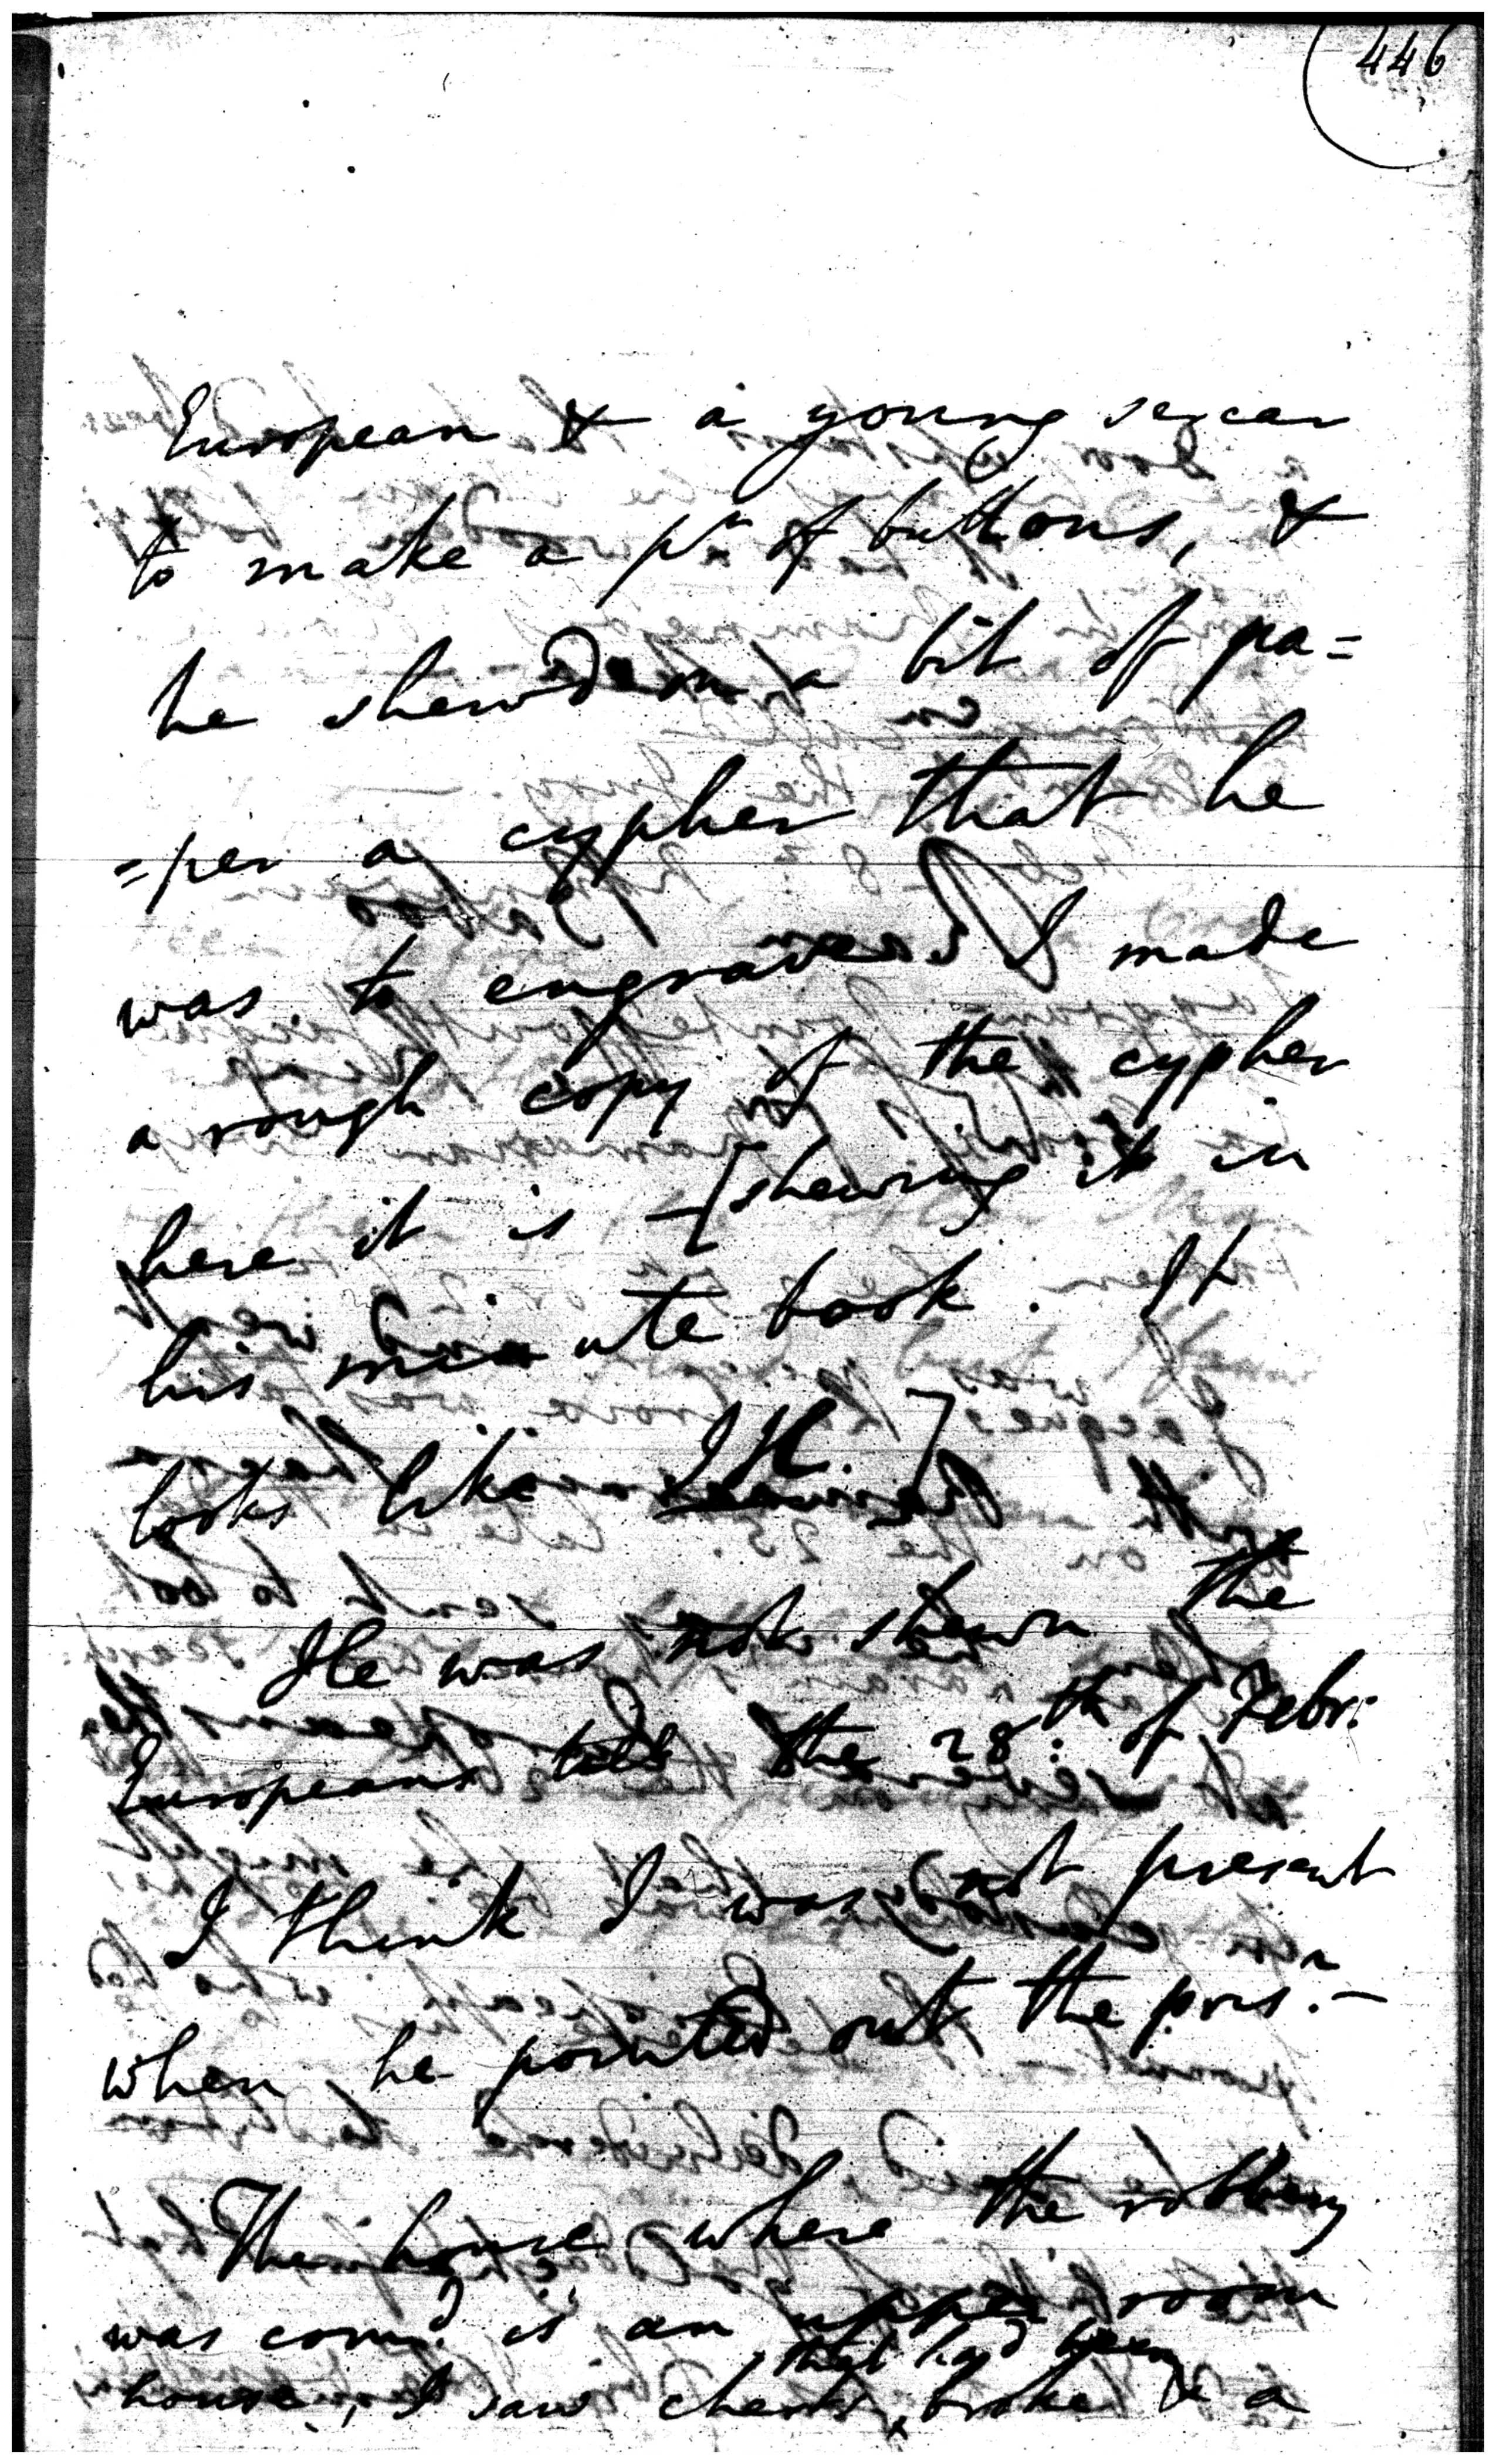 446
European & a young sercar
to make a pr. of buttons, &
he shew'd me on a bit of pa=
=per a cypher that he
was to engrave. I made
a rough copy of the cypher
here it is — [shewing it in
his minute book. It
looks like I H. ]
He was not shewn the
Europeans till the 28:th of Febr:
I think I was not present
when he pointed out the pris:r —
The house where the robbery
was com'd. is an upper room
that had been
house, I saw chests broke & a